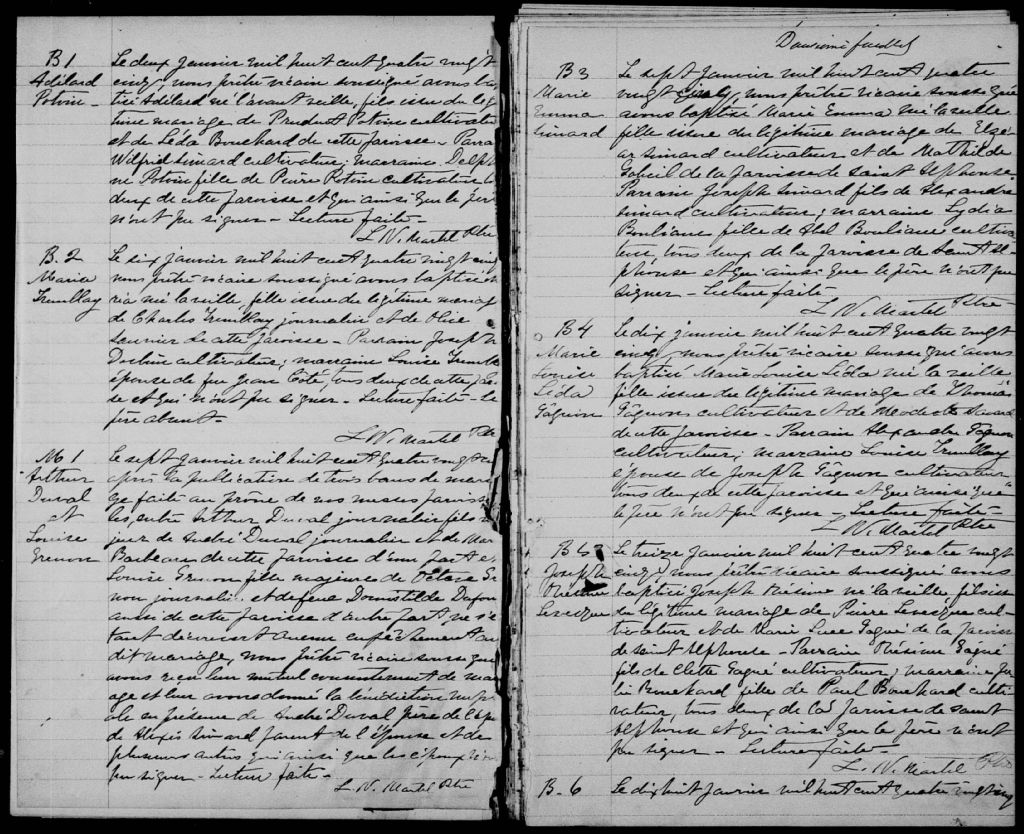 B 1
Adélard
Potvin -
Le deux janvier mil huit cent quatre vingt
cinq, nous prêtre vicaire soussigné avons bap
tisé Adélard né l'avant veille, fils issu du lég
time mariage de Prudent Potvin cultivateur
et de Léda Bouchard de cette paroisse - Parra
Wilfrid Simard cultivateur; marraine Delph
ne Potvin fille de Pierre Potvin cultivateur
deux de cette paroisse et qui ainsi que le père
n'ont pu signer - Lecture faite -
L. N. Martel Ptre
B. 2
Maria
Tremblay
Le six janvier mil huit cent quatre vingt cinq
nous prêtre vicaire soussigné avons baptisé
ria née la veille, fille issue du légitime mariag
de Charles Tremblay journalier et de
de cette paroisse - Parrain Joseph
cultivateur; marraine Louise Trembl
épouse de feu Jean Coté, tous deux de cette
se et qui n'ont pu signer - Lecture faite - Le
père absent -
L. N. Martel Ptre
M 1
Arthur
Duval
et
Louise
Grenon
Le sept janvier mil huit cent quatre vingt
après la publication de trois bans de maria
ge faite au prône de nos messes paroiss
les, entre Arthur Duval journalier fils
jeur de André Duval journalier et de
Barbeau de cette paroisse d'une part et
Louise Grenon fille majeure de Gre
non journalier et de feue Domitilde
aussi de cette paroisse d'autre part ne s'é
tant découvert aucun empêchement au
dit mariage, nous prêtre vicaire soussigné
avons reçu leur mutuel consentement de mari
age et leur avons donné la bénédiction nupti
ale en présence de André Duval père de l'épo
de Alexis Simard parent de l'épouse et de
plusieurs autres qui ainsi que les époux n'on
pu signer - Lecture faite -
L. N. Martel Ptre
Deuxième feuillet
B 3
Marie
Emma
Simard
Le sept janvier mil huit cent quatre
vingt cinq, nous prêtre vicaire soussigné
avons baptisé Marie Emma née la veille
fille issue du légitime mariage de Elzé
ar Simard cultivateur et de Mathilde
Gobeil de la paroisse de saint Alphonse
Parrain Joseph Simard fils de Alexandre
Simard cultivateur; marraine Lydia
Bouliane fille de Abel Bouliane cultiva
teur, tous deux de la paroisse de saint Al
phonse et qui ainsi que le père n'ont pu
signer - Lecture faite -
L. N. Martel Ptre -
B 4
Marie
Louise
Léda
Gagnon
Le dix janvier mil huit cent quatre vingt
cinq, nous prêtre vicaire soussigné avons
baptisé Marie Louise Léda née la veille
fille issue du légitime mariage de Thomas
Gagnon cultivateur et de Modeste
de cette paroisse - Parrain Alexandre Gagnon
cultivateur; marraine Louise Tremblay
épouse de Joseph Gagnon cultivateur
tous deux de cette paroisse et qui ainsi que
le père n'ont pu signer - Lecture faite -
L. N. Martel Ptre
B
Joseph
Onésime
Levesque
Le treize janvier mil huit cent quatre vingt
cinq, nous prêtre vicaire soussigné avons
baptisé Joseph Onésime né la veille, fils issu
du légitime mariage de Pierre Levesque cul
tivateur et de Marie Luce Gagné de la paroisse
de saint Alphonse - Parrain Onésime Gagné
fils de Gagné cultivateur; marraine
Bouchard fille de Paul Bouchard culti
vateur, tous deux de la paroisse de saint
Alphonse et qui ainsi que le père n'ont
pu signer - Lecture faite -
L. N. Martel Ptre
B - 6
Le dix huit janvier mil huit cent quatre vingt cinq